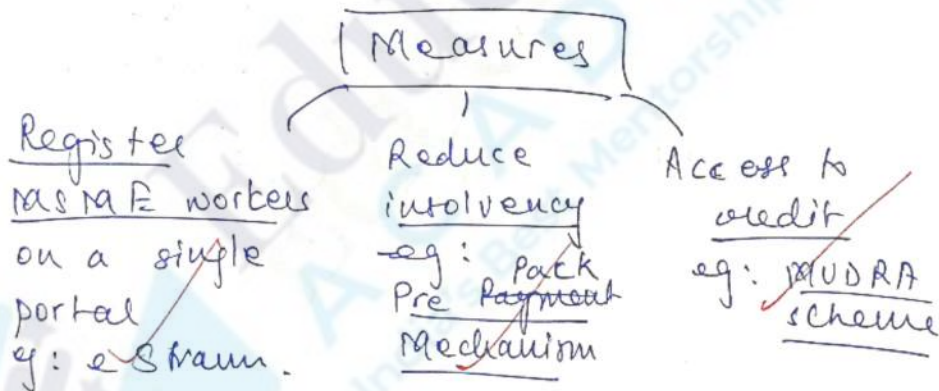 Measures
Register
MSME workers
on a single
portal
eg: e Shram.
Reduce
insolvency
eg: Pack
Pre Payment
Mechanism
Access to
credit
eg: MUDRA
scheme